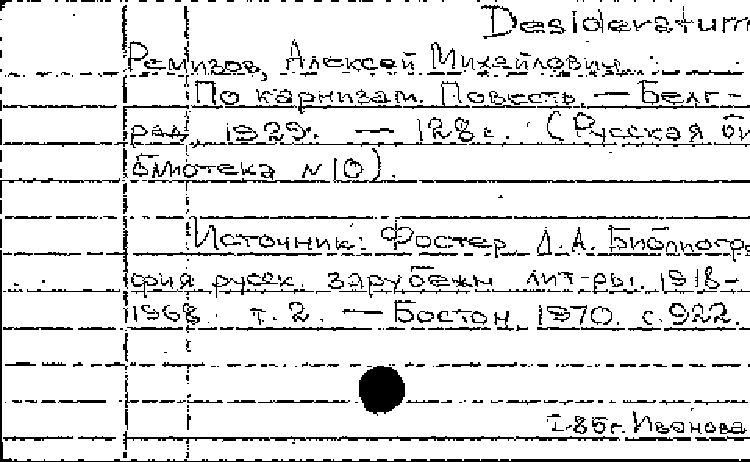 Desideratum
Ремизов, Алексей Михайлович.
По карнизам. Повесть. — Белг-
рад, 1929. — 128 с. (Русская би
блиотека N 10).
Источник: Фостер Л.А. Библиогра
фия русск. зарубежн. лит-ры. 1918-
1968. т. 2. — Бостон, 1970. с. 922.
I-85г. Иванова